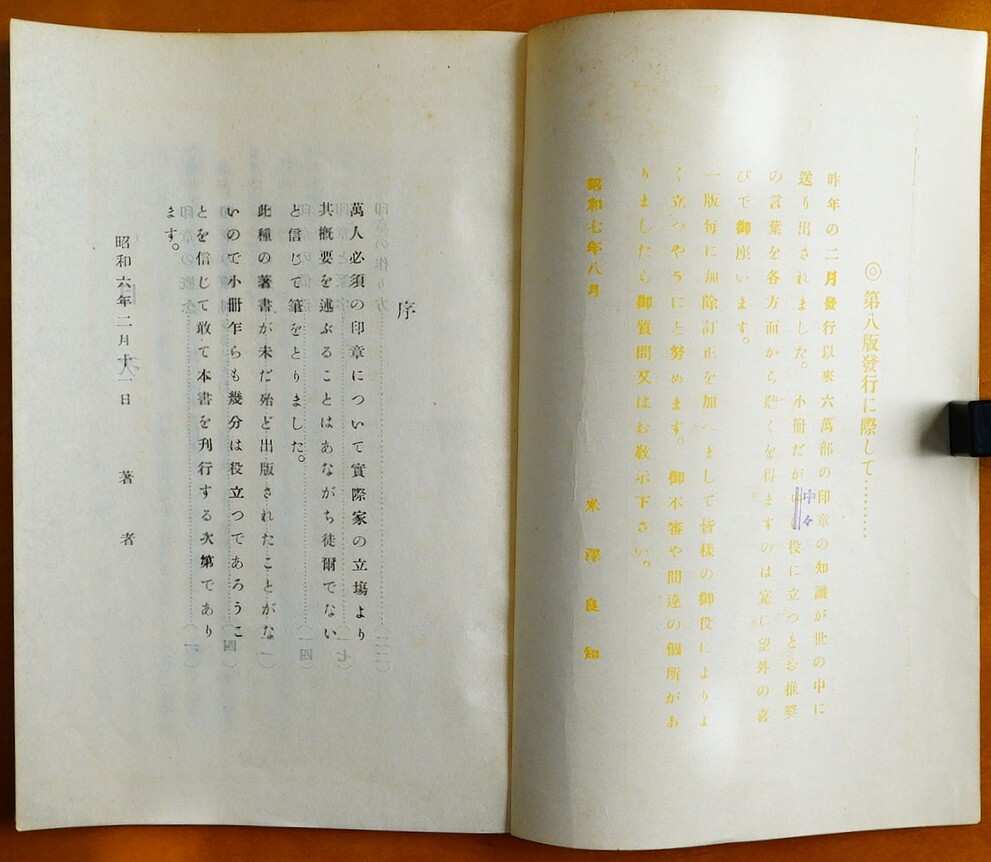 ◎第八版發行に際して………
昨年の二月發行以來六萬部の印章の知識が世の中に
送り出されました。小册だが中々役に立つとお推奬
の言葉を各方面から聽くを得ますのは寔に望外の喜
びで御座います。
一版每に加除訂正を加へまして皆様の御役によりよ
く立つやうにと努めます。御不審や間違の個所があ
りましたら御質問又はお敎示下さい。
昭和七年八月
米澤良知
序
萬人必須の印章について實際家の立塲より
其概要を述ぶることはあながち徒爾でない
と信じて筆をとりました。
此種の著書が未だ殆ど出版されたことがな
いので小册乍らも幾分は役立つであろうこ
とを信じて敢て本書を刋行する次第であり
ます。
昭和六年二月十一日
著者